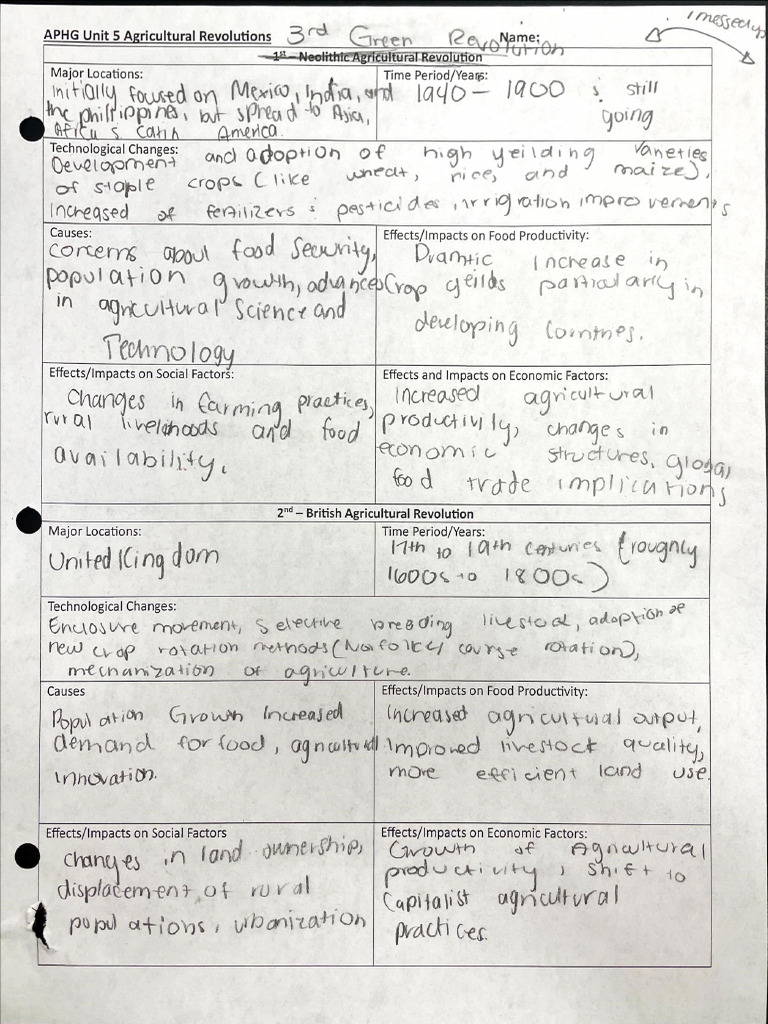 i messed up
APHG Unit 5 Agricultural Revolutions 3rd Green Revolution Name:
1st – Neolithic Agricultural Revolution
Major Locations:
Initially focused on Mexico, India, and
the philippines, but spread to Asia,
Africa & Latin America.
Time Period/Years:
1940 – 1900 & still
going
Technological Changes:
Development and adoption of high yeilding varieties
of staple crops (like wheat, rice, and maize),
Increased of fertilizers & pesticides irrigration improvements
Causes:
concerns about food Security,
population growth, advances
in agricultural Science and
Technology
Effects/Impacts on Food Productivity:
Dramtic Increase in
Crop yeilds particularly in
developing Countries.
Effects/Impacts on Social Factors:
Changes in farming practices,
rural livelihoods and food
availability.
Effects and Impacts on Economic Factors:
Increased agricultural
productivity, changes in
economic structures, global
food trade implications
2nd – British Agricultural Revolution
Major Locations:
United Kingdom
Time Period/Years:
17th to 19th centuries (roughly
1600s to 1800s)
Technological Changes:
Enclosure movement, Selective breeding livestock, adoption of
new crop rotation methods (Norfolk 4 course rotation),
mechanization of agriculture.
Causes
Population Growth Increased
demand for food, agricultural
Innovation.
Effects/Impacts on Food Productivity:
Increased agricultural output,
Improved livestock quality,
more efficient land use.
Effects/Impacts on Social Factors
Changes in land ownership,
displacement of rural
populations, urbanization
Effects/Impacts on Economic Factors:
Growth of Agricultural
productivity, Shift to
Capitalist agricultural
practices.